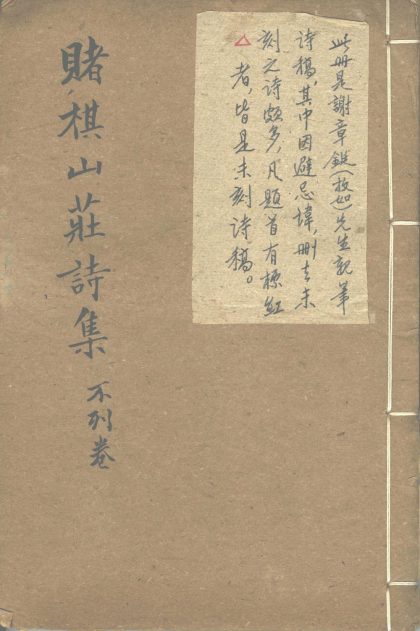 此册是謝章鋌(枚如)先生親筆
詩稿,其中因避忌諱,刪去未
刻之詩頗多,凡題首有標紅
△者,皆是未刻詩稿。
賭棋山莊詩集 不列卷